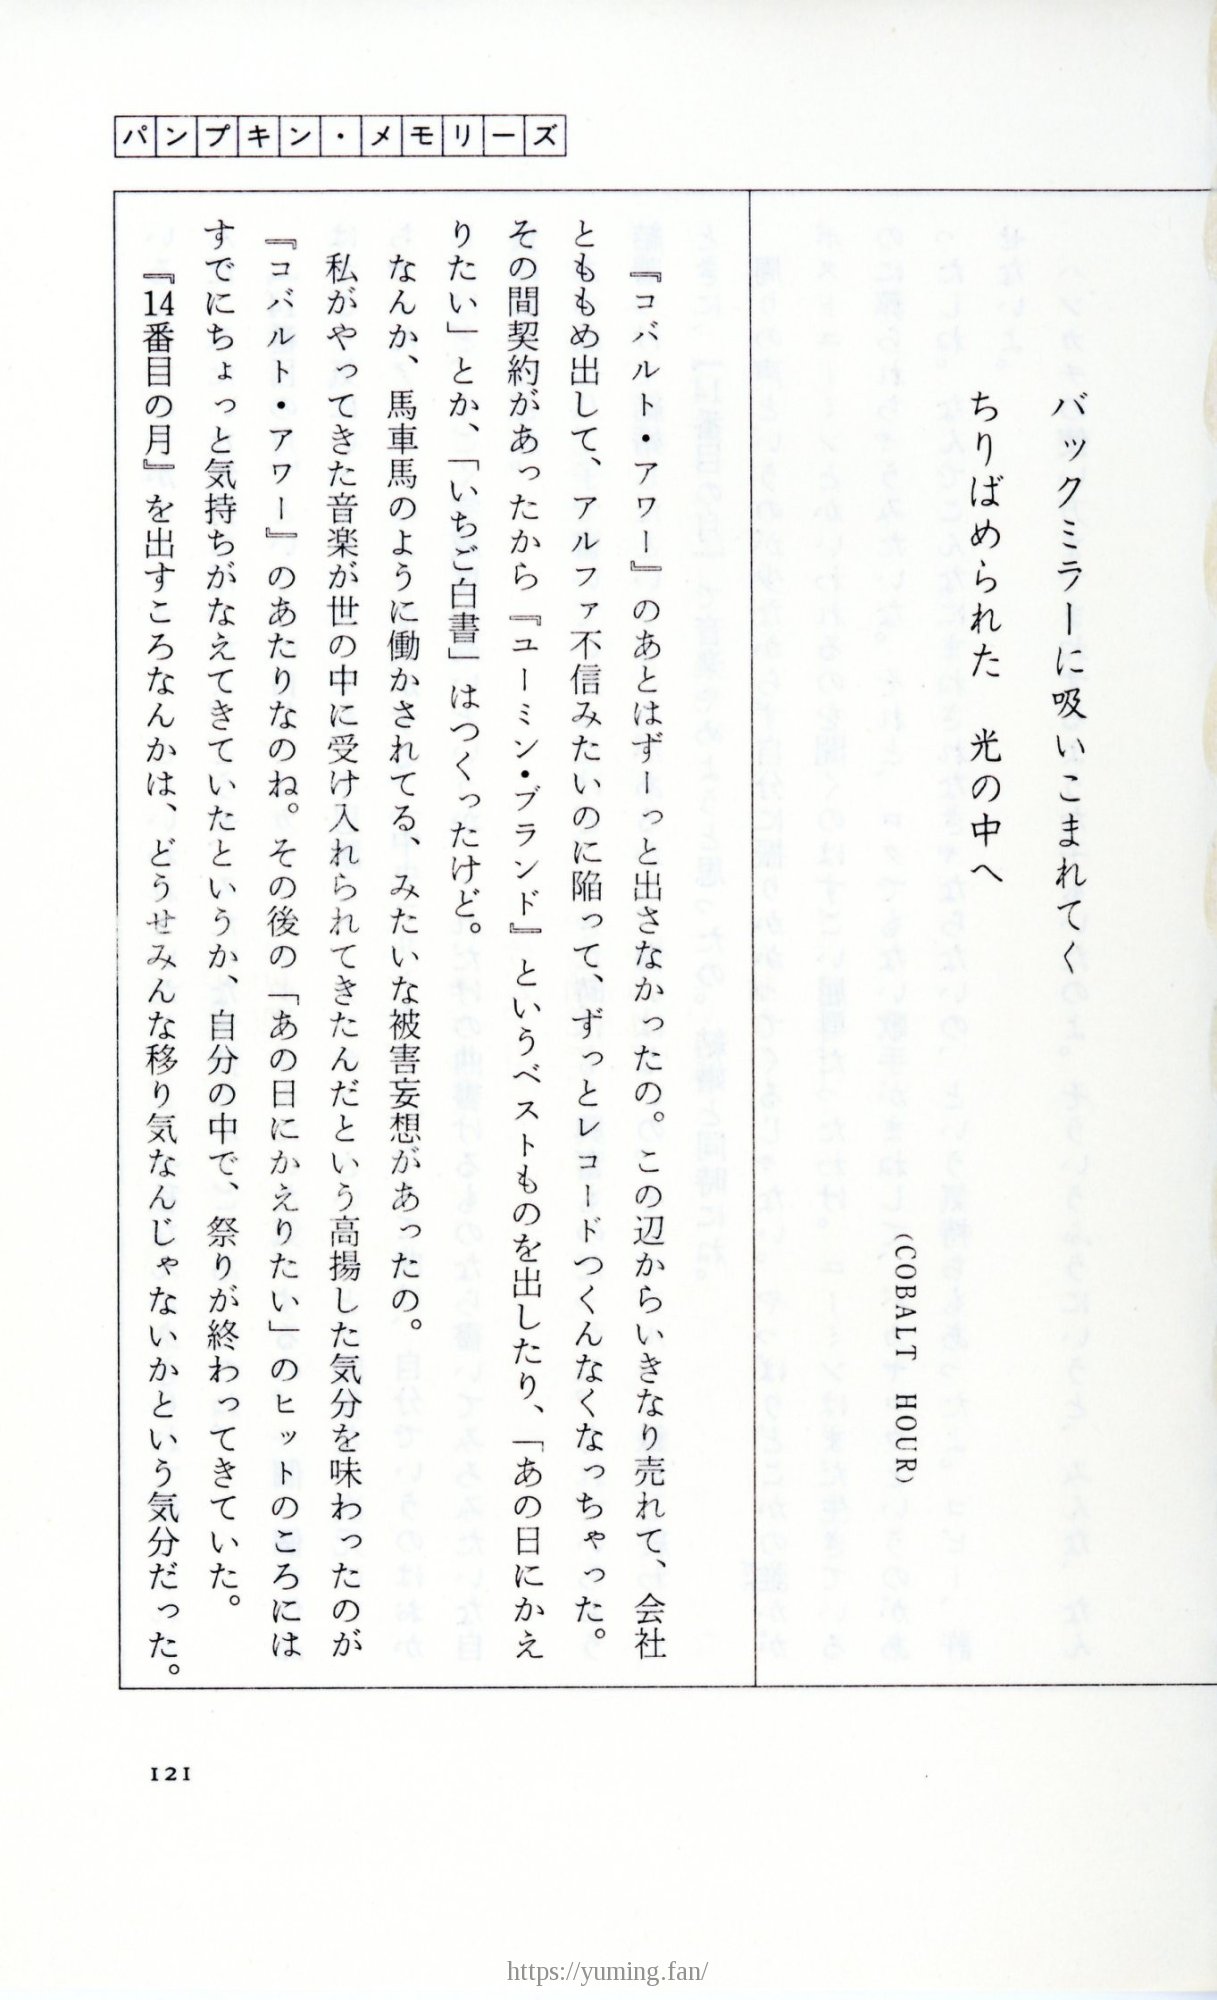 パンプキン・メモリーズ
バックミラーに吸いこまれてく
ちりばめられた　光の中へ
(COBALT HOUR)
『コバルト・アワー』のあとはずーっと出さなかったの。この辺からいきなり売れて、会社
とももめ出して、アルファ不信みたいのに陥って、ずっとレコードつくんなくなっちゃった。
その間契約があったから『ユーミン・ブランド』というベストものを出したり、「あの日にかえ
りたい」とか、「いちご白書」はつくったけど。
なんか、馬車馬のように働かされてる、みたいな被害妄想があったの。
私がやってきた音楽が世の中に受け入れられてきたんだという高揚した気分を味わったのが
『コバルト・アワー』のあたりなのね。その後の「あの日にかえりたい」のヒットのころには
すでにちょっと気持ちがなえてきていたというか、自分の中で、祭りが終わってきていた。
『14番目の月』を出すころなんかは、どうせみんな移り気なんじゃないかという気分だった。
121
https://yuming.fan/